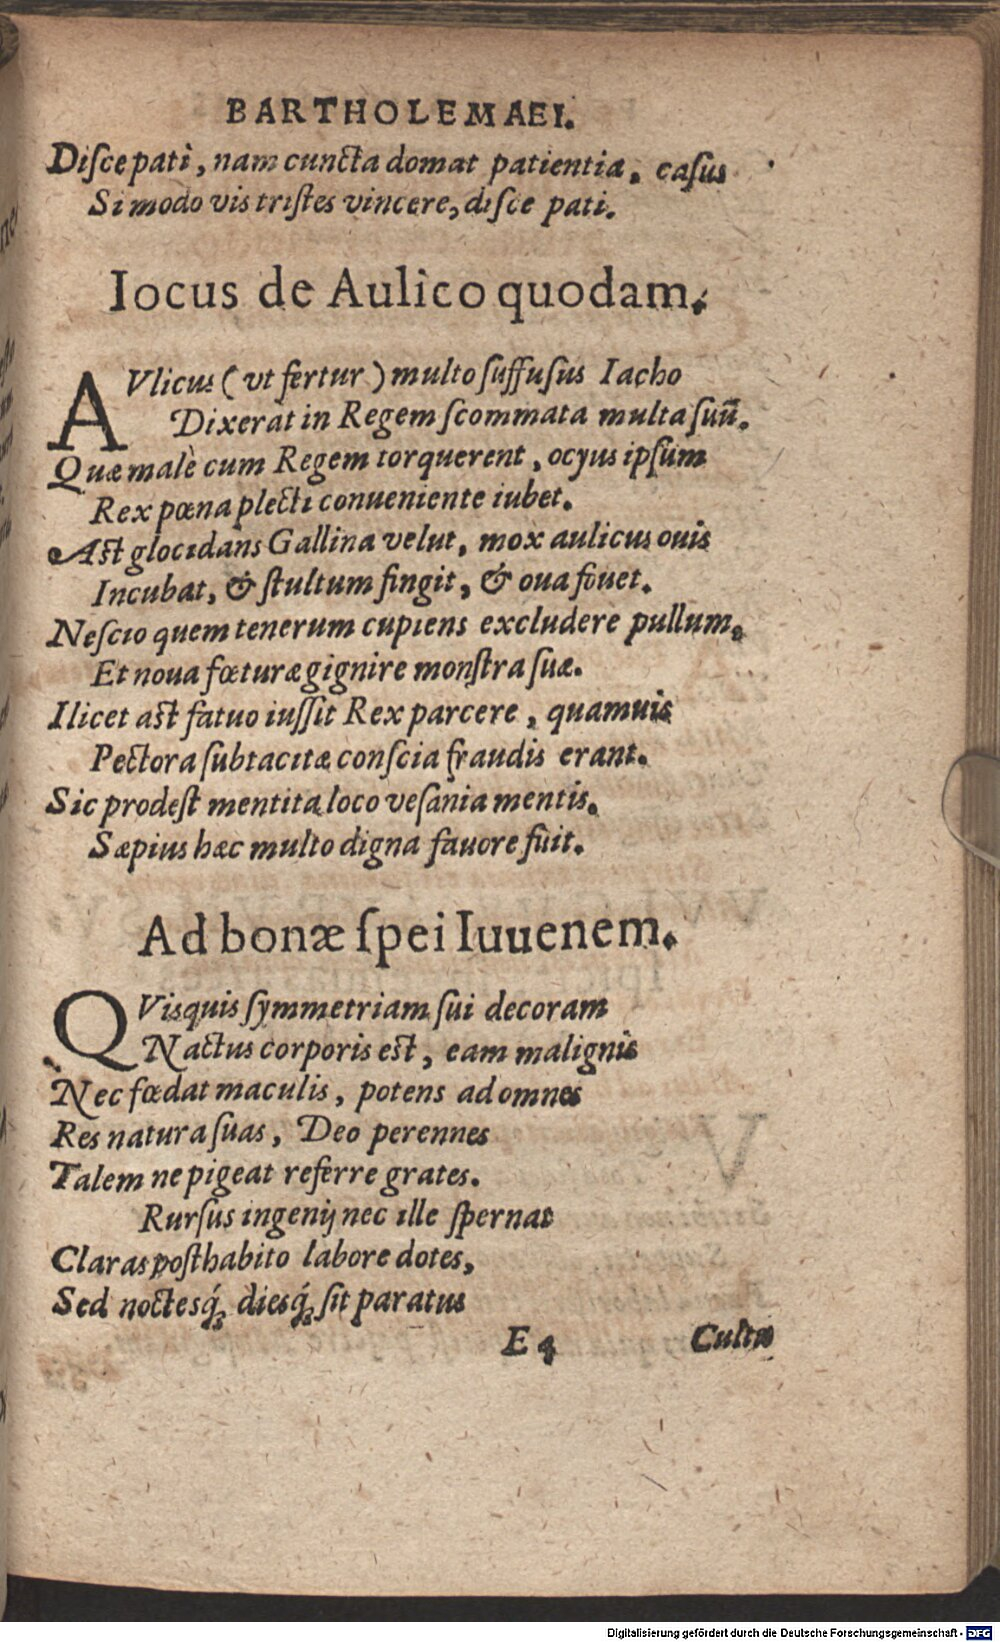 BARTHOLEMAEI.
Diſce pati, nam cuncta domat patientia, caſus
Si modo vis triſtes vincere, diſce pati.
Iocus de Aulico quodam.
AVlicus (vt fertur) multo ſuffuſus Iacho
Dixerat in Regem ſcommata multa ſuū.
Quæ malè cum Regem torquerent, ocyus ipſum
Rex pœna plecti conueniente iubet.
Aſt glocidans Gallina velut, mox aulicus ouis
Incubat, & ſtultum fingit, & oua fouet.
Neſcio quem tenerum cupiens excludere pullum,
Et noua fœturæ gignire monſtra ſuæ.
Ilicet aſt fatuo iuſſit Rex parcere, quamuis
Pectora ſubtacitæ conſcia fraudis erant.
Sic prodeſt mentita loco veſania mentis,
Sæpius hæc multo digna fauore fuit.
Ad bonæ ſpei Iuuenem.
QViſquis ſymmetriam ſui decoram
Nactus corporis eſt, eam malignis
Nec fœdat maculis, potens ad omnes
Res natura ſuas, Deo perennes
Talem ne pigeat referre grates.
Rurſus ingenij nec ille ſpernat
Claras poſthabito labore dotes,
Sed noctesq́; diesq́; ſit paratus
E 4 Cultæ
Digitalisierung gefördert durch die Deutsche Forschungsgemeinschaft - DFG